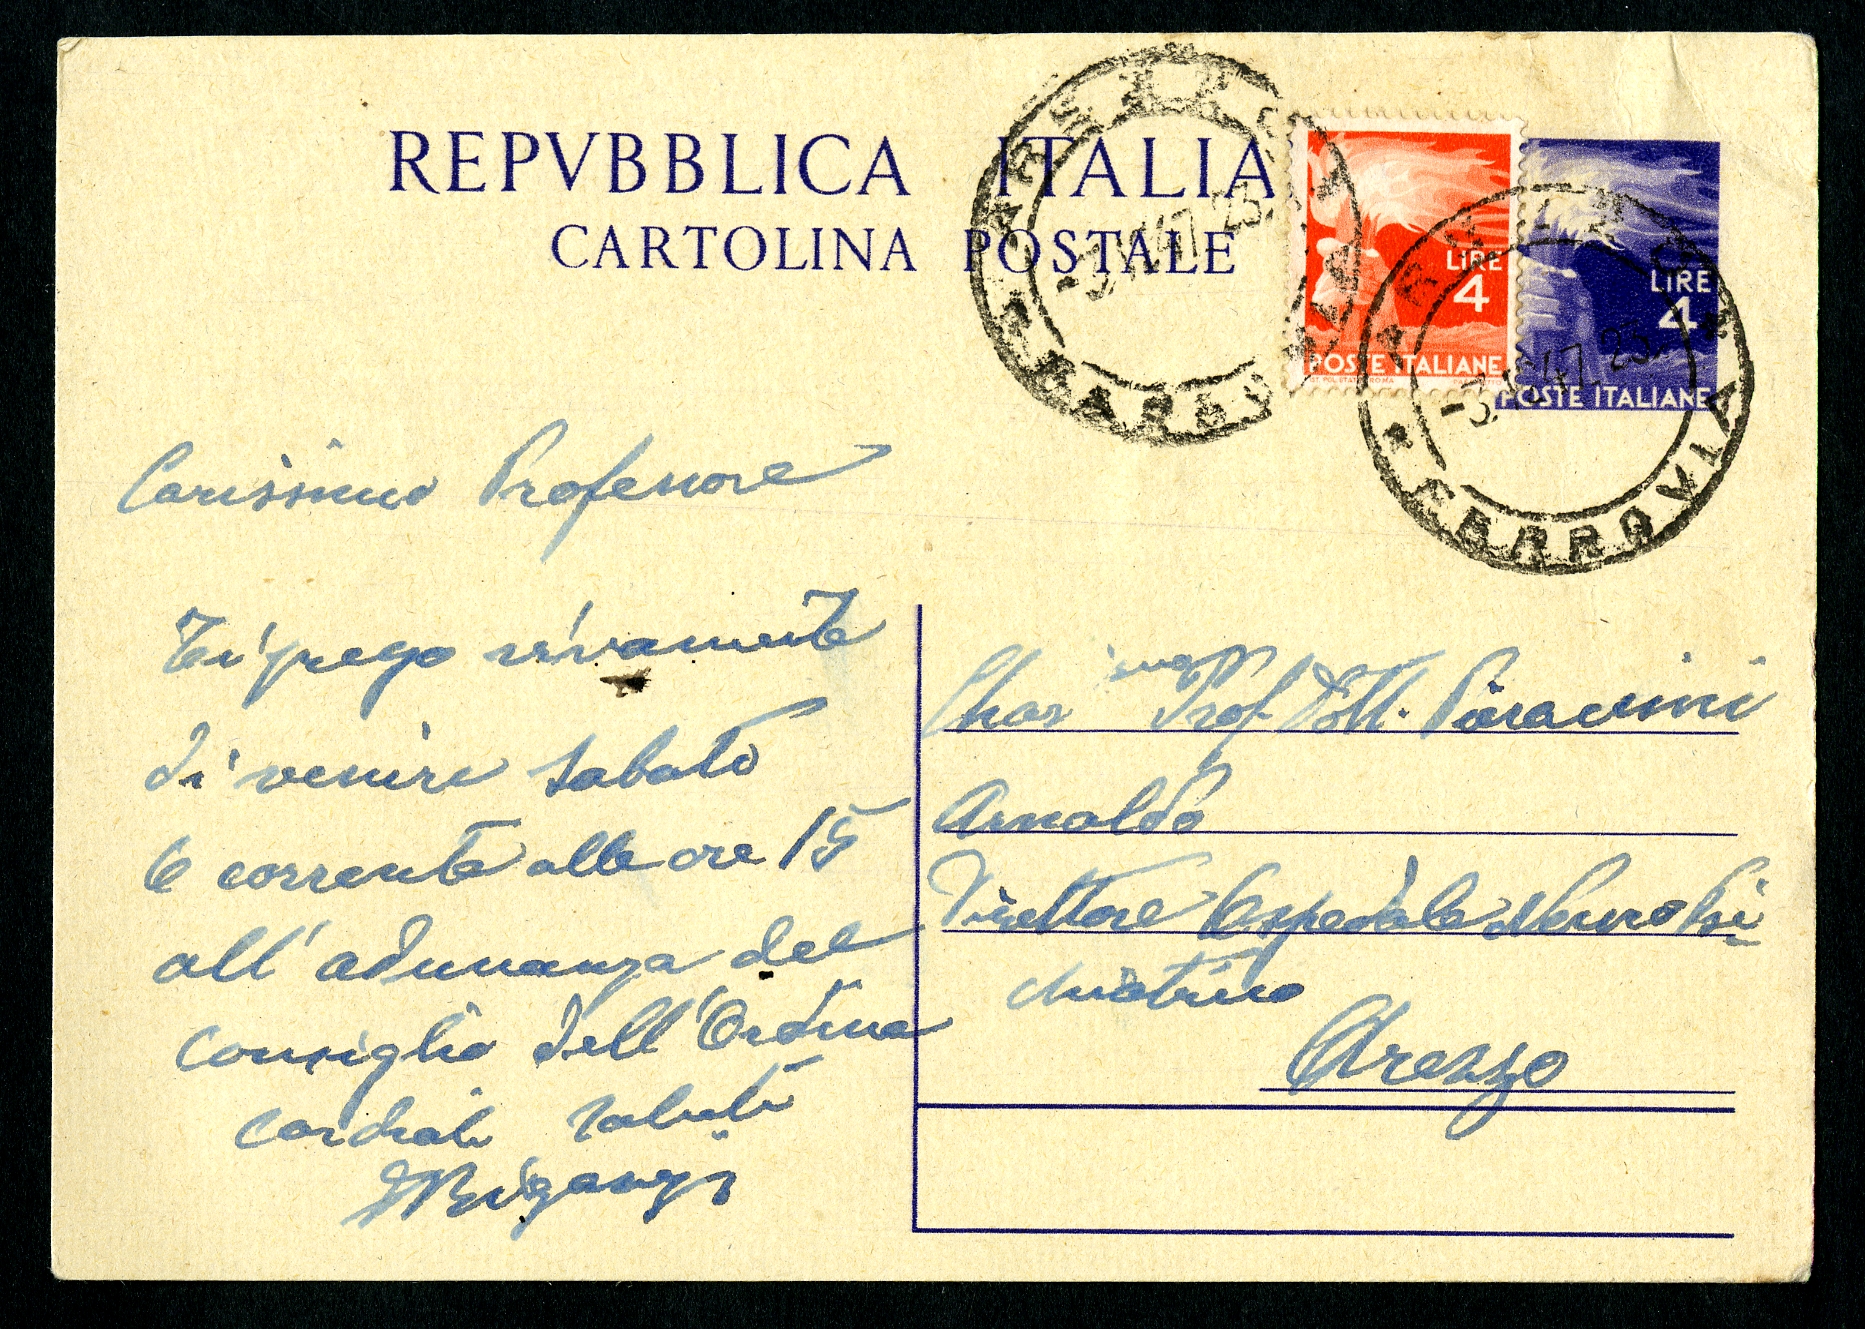 REPVBBLICA ITALIANA
CARTOLINA POSTALE
LIRE
4
POSTE ITALIANE
LIRE
4
POSTE ITALIANE
AREZZO
FERROVIA
AREZZO
FERROVIA
Carissimo Professore
Ti prego vivamente
di venire sabato
6 corrente alle ore 15
all'adunanza del
Consiglio dell'Ordine
Cordiali saluti
Char.imo Prof. Dott. Pieraccini
Arnaldo
Direttore Ospedale Neuro Psi-
chiatrico
Arezzo